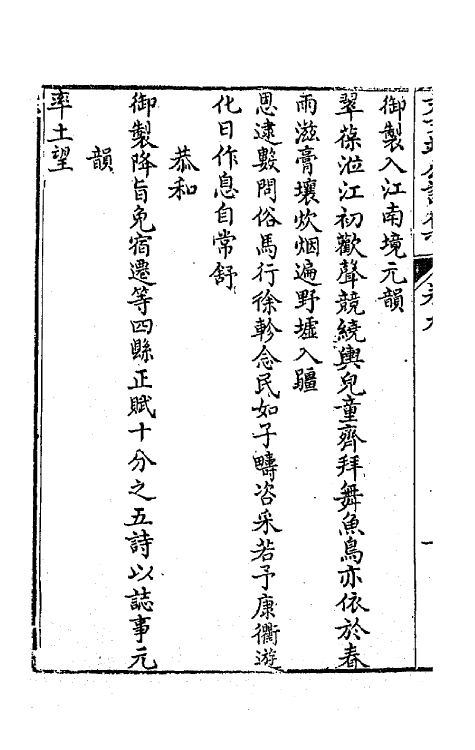 御製入江南境元韻
翠葆涖江初歡聲競繞輿兒童齊拜舞魚鳥亦依於春
雨滋膏壤炊烟遍野墟入疆
思逮數問俗馬行徐軫念民如子疇咨采若予康衢遊
化日作息自常舒
恭和
御製降旨免宿遷等四縣正賦十分之五詩以誌事元
韻
率土望
卷九
一